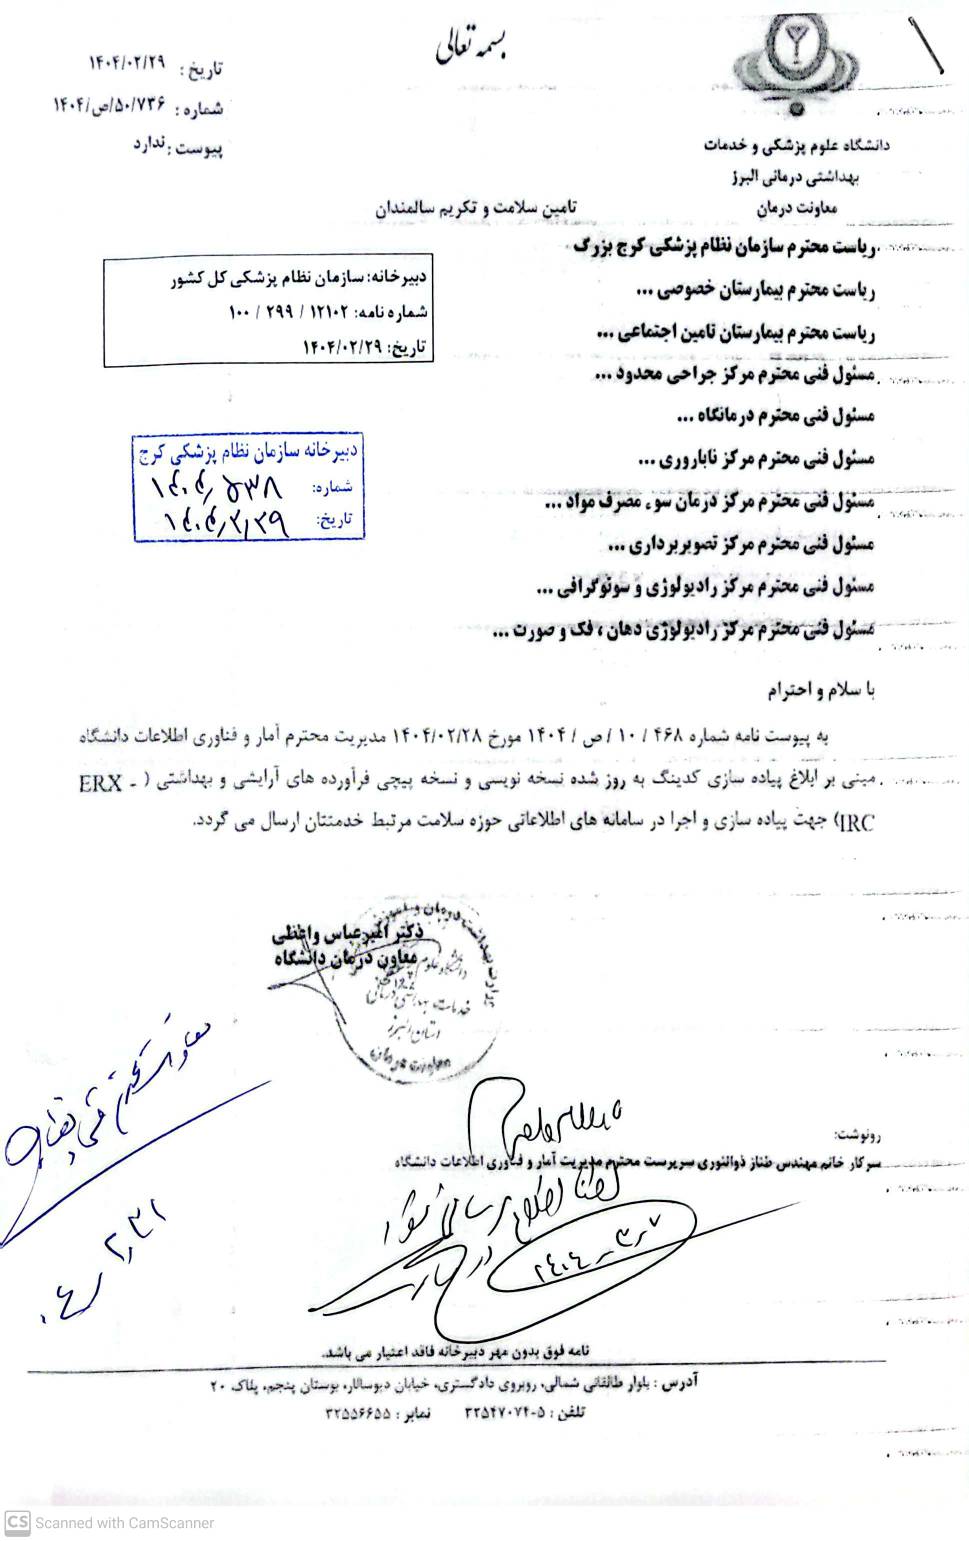 بسمه تعالی
تاریخ : ۱۴۰۴/۰۲/۲۹
شماره : ۱۴۰۴/ص/۵۰/۷۳۶
پیوست : ندارد
دانشگاه علوم پزشکی و خدمات
بهداشتی درمانی البرز
معاونت درمان
تامین سلامت و تکریم سالمندان
ریاست محترم سازمان نظام پزشکی کرج بزرگ
ریاست محترم بیمارستان خصوصی ...
ریاست محترم بیمارستان تامین اجتماعی ...
مسئول فنی محترم مرکز جراحی محدود ...
مسئول فنی محترم درمانگاه ...
مسئول فنی محترم مرکز ناباروری ...
مسئول فنی محترم مرکز درمان سوء مصرف مواد ...
مسئول فنی محترم مرکز تصویربرداری ...
مسئول فنی محترم مرکز رادیولوژی و سونوگرافی ...
مسئول فنی محترم مرکز رادیولوژی دهان ، فک و صورت ...
دبیرخانه: سازمان نظام پزشکی کل کشور
شماره نامه: ۱۲۱۰۲ / ۲۹۹ / ۱۰۰
تاریخ: ۱۴۰۴/۰۲/۲۹
دبیرخانه سازمان نظام پزشکی کرج
شماره: ۱۴۰۴٫۵۳۸
تاریخ: ۱۴۰۴٫۲٫۲۹
با سلام و احترام
به پیوست نامه شماره ۴۶۸ / ۱۰ /ص / ۱۴۰۴ مورخ ۱۴۰۴/۰۲/۲۸ مدیریت محترم آمار و فناوری اطلاعات دانشگاه
مبنی بر ابلاغ پیاده سازی کدینگ به روز شده نسخه نویسی و نسخه پیچی فرآورده های آرایشی و بهداشتی ( ERX -
IRC) جهت پیاده سازی و اجرا در سامانه های اطلاعاتی حوزه سلامت مرتبط خدمتتان ارسال می گردد.
دکتر امیرعباس واعظی
معاون درمان دانشگاه
خدمات بهداشتی درمانی
استان البرز
معاونت درمان
رونوشت:
سرکار خانم مهندس طناز ذوالنوری سرپرست محترم مدیریت آمار و فناوری اطلاعات دانشگاه
نامه فوق بدون مهر دبیرخانه فاقد اعتبار می باشد.
آدرس : بلوار طالقانی شمالی، روبروی دادگستری، خیابان دیوسالار، بوستان پنجم، پلاک ۲۰
تلفن : ۵-۳۲۵۴۷۰۷۴ نمابر : ۳۲۵۵۶۶۵۵
CS Scanned with CamScanner